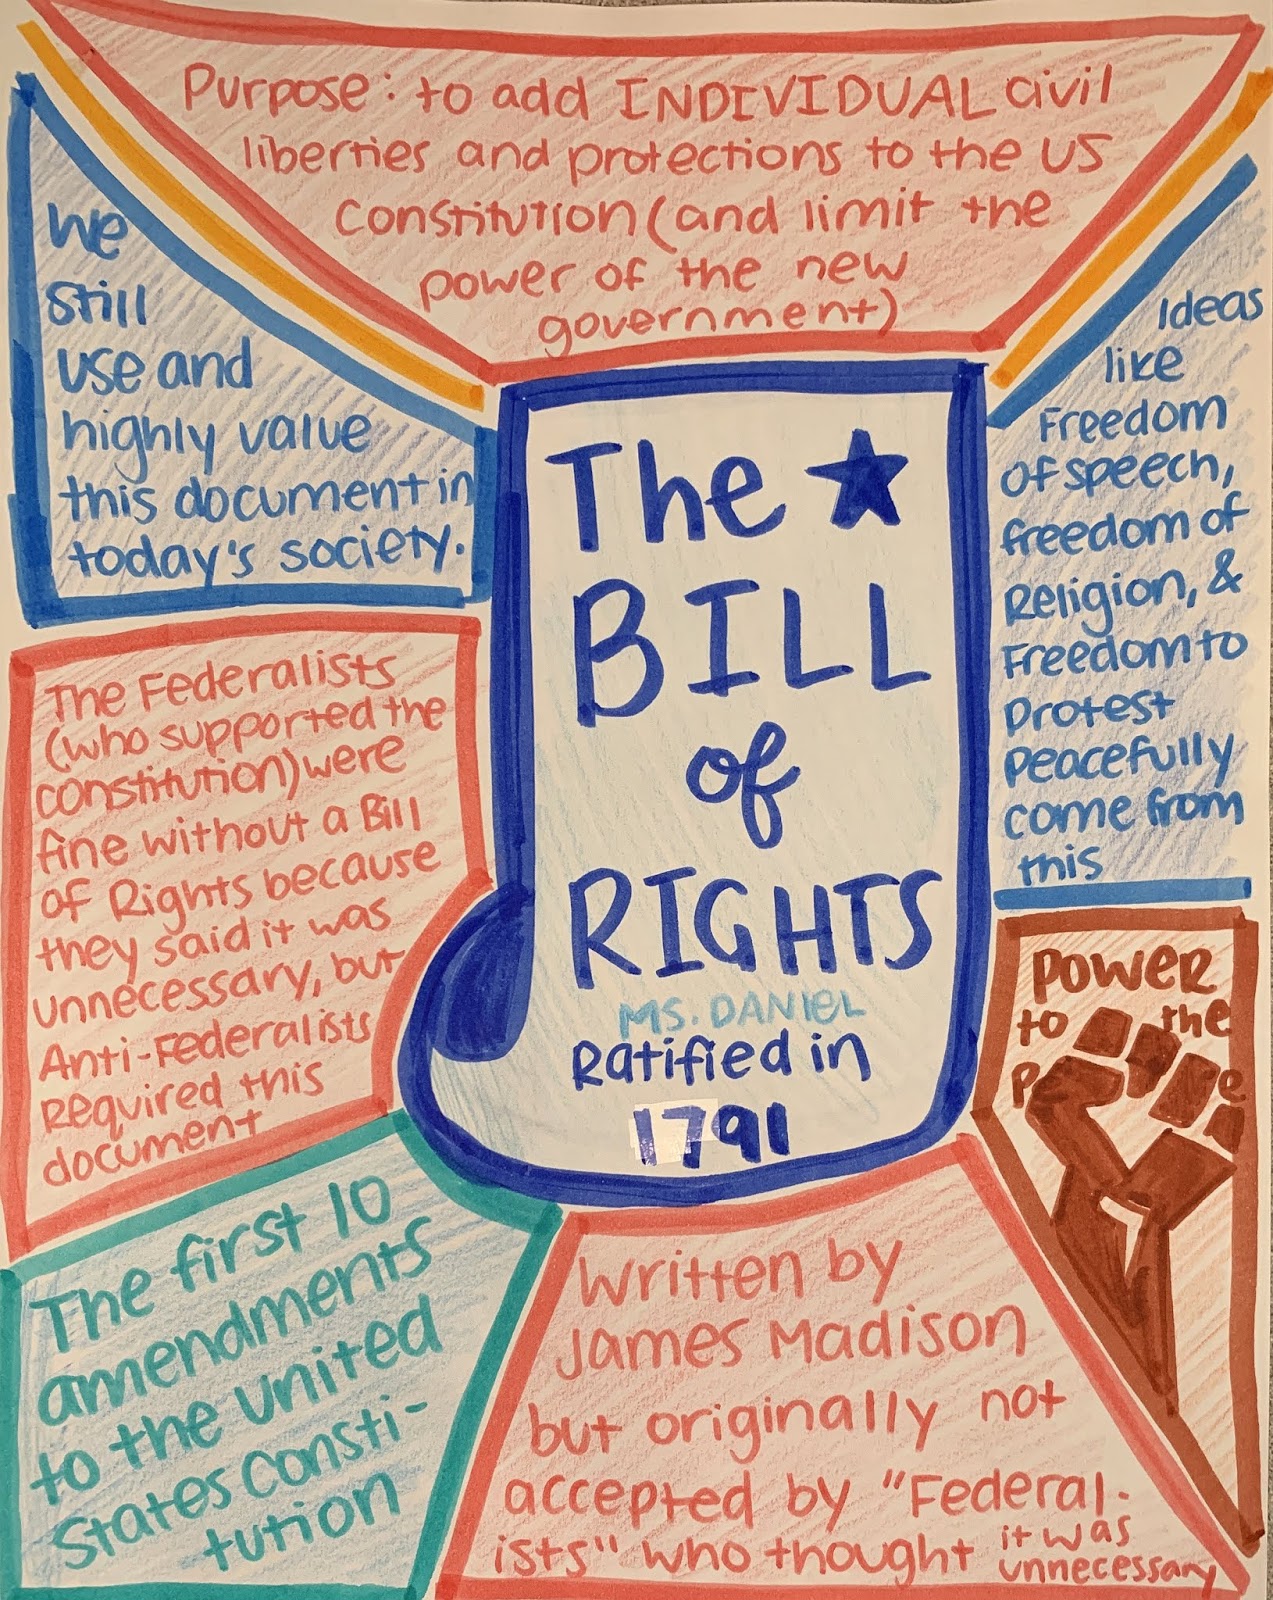 Purpose: to add INDIVIDUAL civil
liberties and protections to the US
Constitution (and limit the
power of the new
government)
We
still
use and
highly value
this document in
today's society.
The ★
BILL
of
RIGHTS
MS. DANIEL
Ratified in
1791
Ideas
like
Freedom
of speech,
freedom of
Religion, &
Freedom to
Protest
peacefully
come from
this
The Federalists
(who supported the
constitution) were
fine without a Bill
of Rights because
they said it was
unnecessary, but
Anti-Federalists
required this
document
POWER
to the
The first 10
amendments
to the United
States Consti-
tution
Written by
James Madison
but originally not
accepted by "Federal-
ists" who thought it was
unnecessary